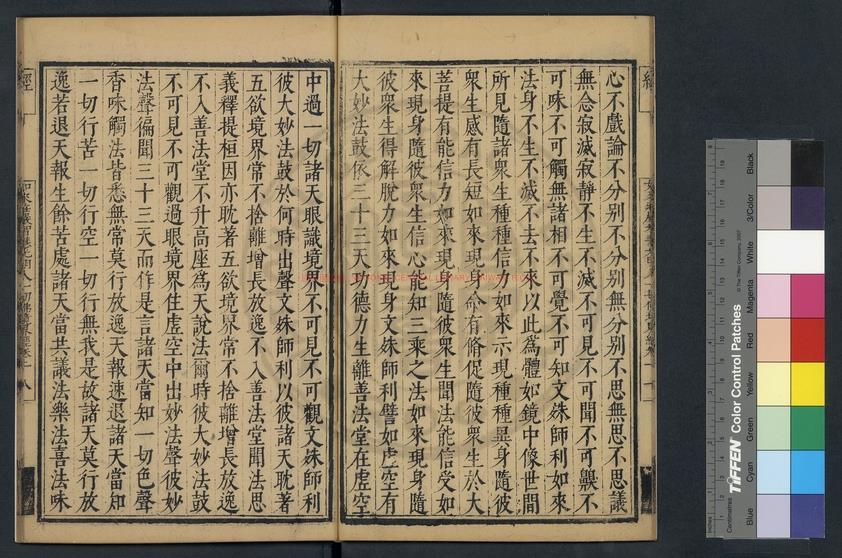 心不戲論不分别不分别無分别不思無思不思議
無念寂滅寂靜不生不滅不可見不可聞不可齅不
可味不可觸無諸相不可覺不可知文殊師利如來
法身不生不滅不去不來以此爲體如鏡中像世間
所見隨諸衆生種種信力如來示現種種異身隨彼
衆生感有長短如來現身命有脩促隨彼衆生於大
菩提有能信力如來現身隨彼衆生聞法能信受如
來現身隨彼衆生信心能知三乘之法如來現身隨
彼衆生得解脫力如來現身文殊師利譬如虛空有
大妙法鼓依三十三天功德力生離善法堂在虛空
中過一切諸天眼識境界不可見不可觀文殊師利
彼大妙法鼓於何時出聲文殊師利以彼諸天耽著
五欲境界常不捨離增長放逸不入善法堂聞法思
義釋提桓因亦耽著五欲境界常不捨離增長放逸
不入善法堂不升高座爲天說法爾時彼大妙法鼓
不可見不可觀過眼境界住虛空中出妙法聲彼妙
法聲徧聞三十三天而作是言諸天當知一切色聲
香味觸法皆悉無常莫行放逸天報速退諸天當知
一切行苦一切行空一切行無我是故諸天莫行放
逸若退天報生餘苦處諸天當共議法樂法喜法味
經
TIFFEN Color Control Patches
© The Tiffen Company, 2007
Blue
Cyan
Green
Yellow
Red
Magenta
White
3/Color
Black
Inches
Centimetres